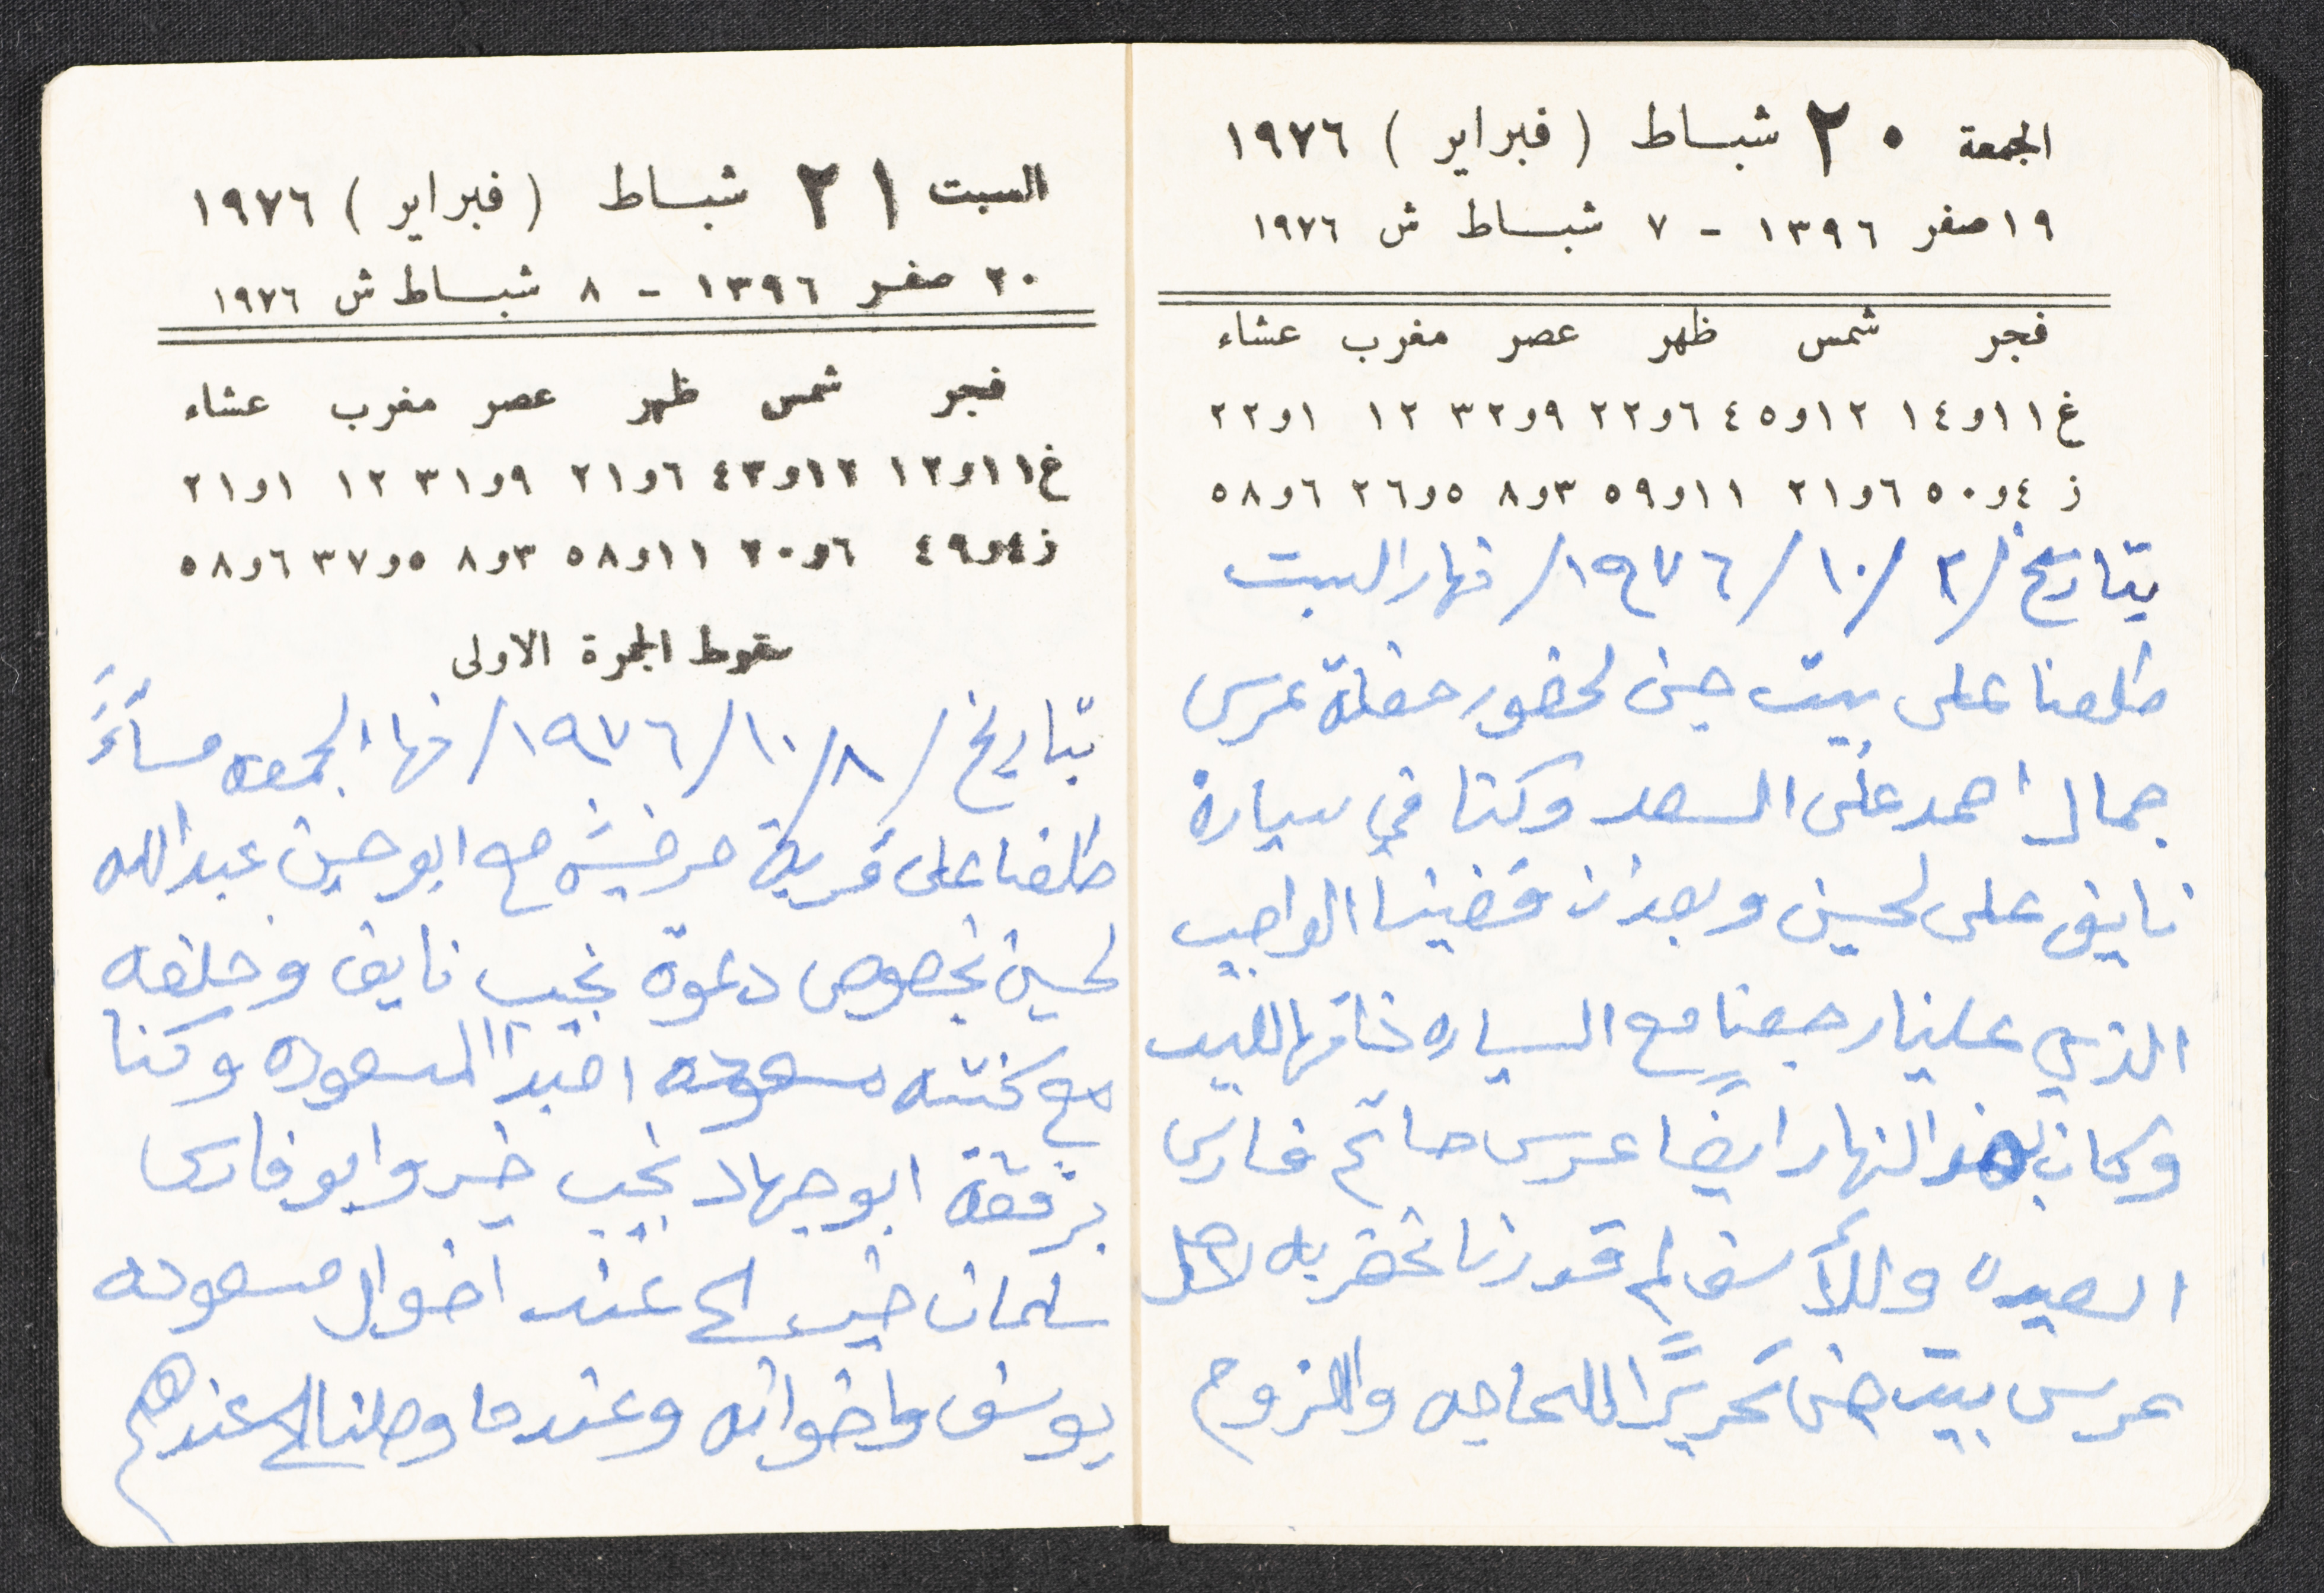 الجمعة ٢٠ شباط (فبراير) ١٩٧٦
١٩ صفر ١٣٩٦ - ٧ شباط ش ١٩٧٦
فجر شمس ظهر عصر مغرب عشاء
غ ١١و١٤ ١٢و٤٥ ٦و٢٢ ٩و٣٢ ١٢ ١و٢٢
ز ٤و٥٠ ٦و٢١ ١١و٥٩ ٣و٨ ٥و٢٦ ٦و٥٨
بتاريخ /٢/١٠/١٩٧٦/ نهار السبت
طلعنا على بيت جن لحضور حفلة عرس
جمال احمد علي السعد وكنا في سيارة
نايف على لحسين وبعد ان قضينا الواجب
الذي علينا رجعنا مع السياره ذاتها للبيت
وكان بهذا النهار ايضا عرس حاتم فارس
العيده وللأسف لم قدرنا نحضر به لاجل
عرس بيت جن تحريرًا للحاجه واللزوم
السبت ٢١ شباط (فبراير) ١٩٧٦
٢٠ صفر ١٣٩٦ - ٨ شباط ش ١٩٧٦
فجر شمس ظهر عصر مغرب عشاء
غ ١١و١٢ ١٢و٤٣ ٦و٢١ ٩و٣١ ١٢ ١و٢١
ز ٤و٤٩ ٦و٢٠ ١١و٥٨ ٣و٨ ٥و٣٧ ٦و٥٨
سقوط الجمرة الاولى
بتاريخ /٨/١٠/١٩٧٦/ نهار الجمعه مساءً
طلعنا على قرية حرفيش مع ابو حسين عبدالله
لحسين بخصوص دعوة نجيب نايف وحلفه
مع كنته مسعوده المسعوده وكنا
برفقة ابو جهاد نجيب خير وابو فارس
سلمان خير الى عند اخوال مسعوده
يوسف واخوانه وعندما وصلنا الى عندهم